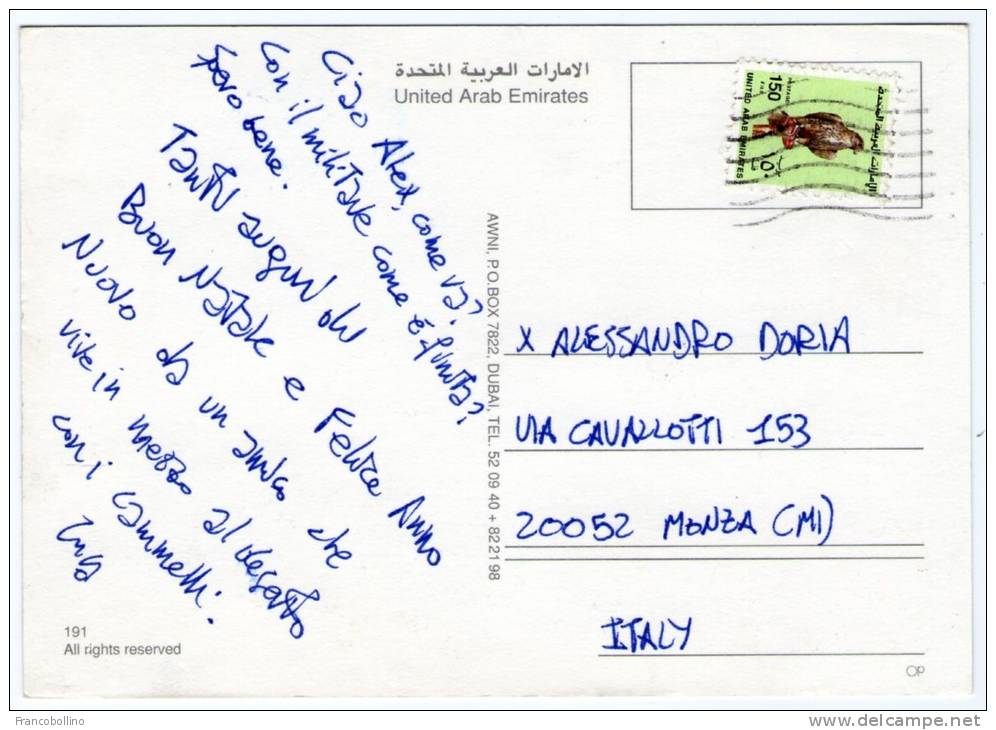 الامارات العربية المتحدة
United Arab Emirates
Ciao Alex, come va?
Con il militare come è finita?
Spero bene.
Tanti auguri di
Buon Natale e Felice Anno
Nuovo da un amico che
vive in mezzo al deserto
con i cammelli.
Luca
الامارات العربية المتحدة
١٥٠
150
POSTAGE
FILS
UNITED ARAB EMIRATES
AWNI, P.O.BOX 7822, DUBAI, TEL.: 52 09 40 + 822198
X ALESSANDRO DORIA
VIA CAVALLOTTI 153
20052 MONZA (MI)
ITALY
191
All rights reserved
Francobollino
www.delcampe.net